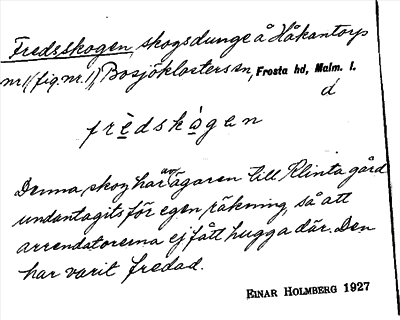 Fredsskogen, skogsdunge å Håkantorp
nr 1 (fig. nr. 1), Bosjöklosters sn, Frosta hd, Malm. l.
d
frèdskògen
Denna skog har av ägaren till Klinta gård
undantagits för egen räkning, så att
arrendatorerna ej fått hugga där. Den
har varit fredad.
EINAR HOLMBERG 1927